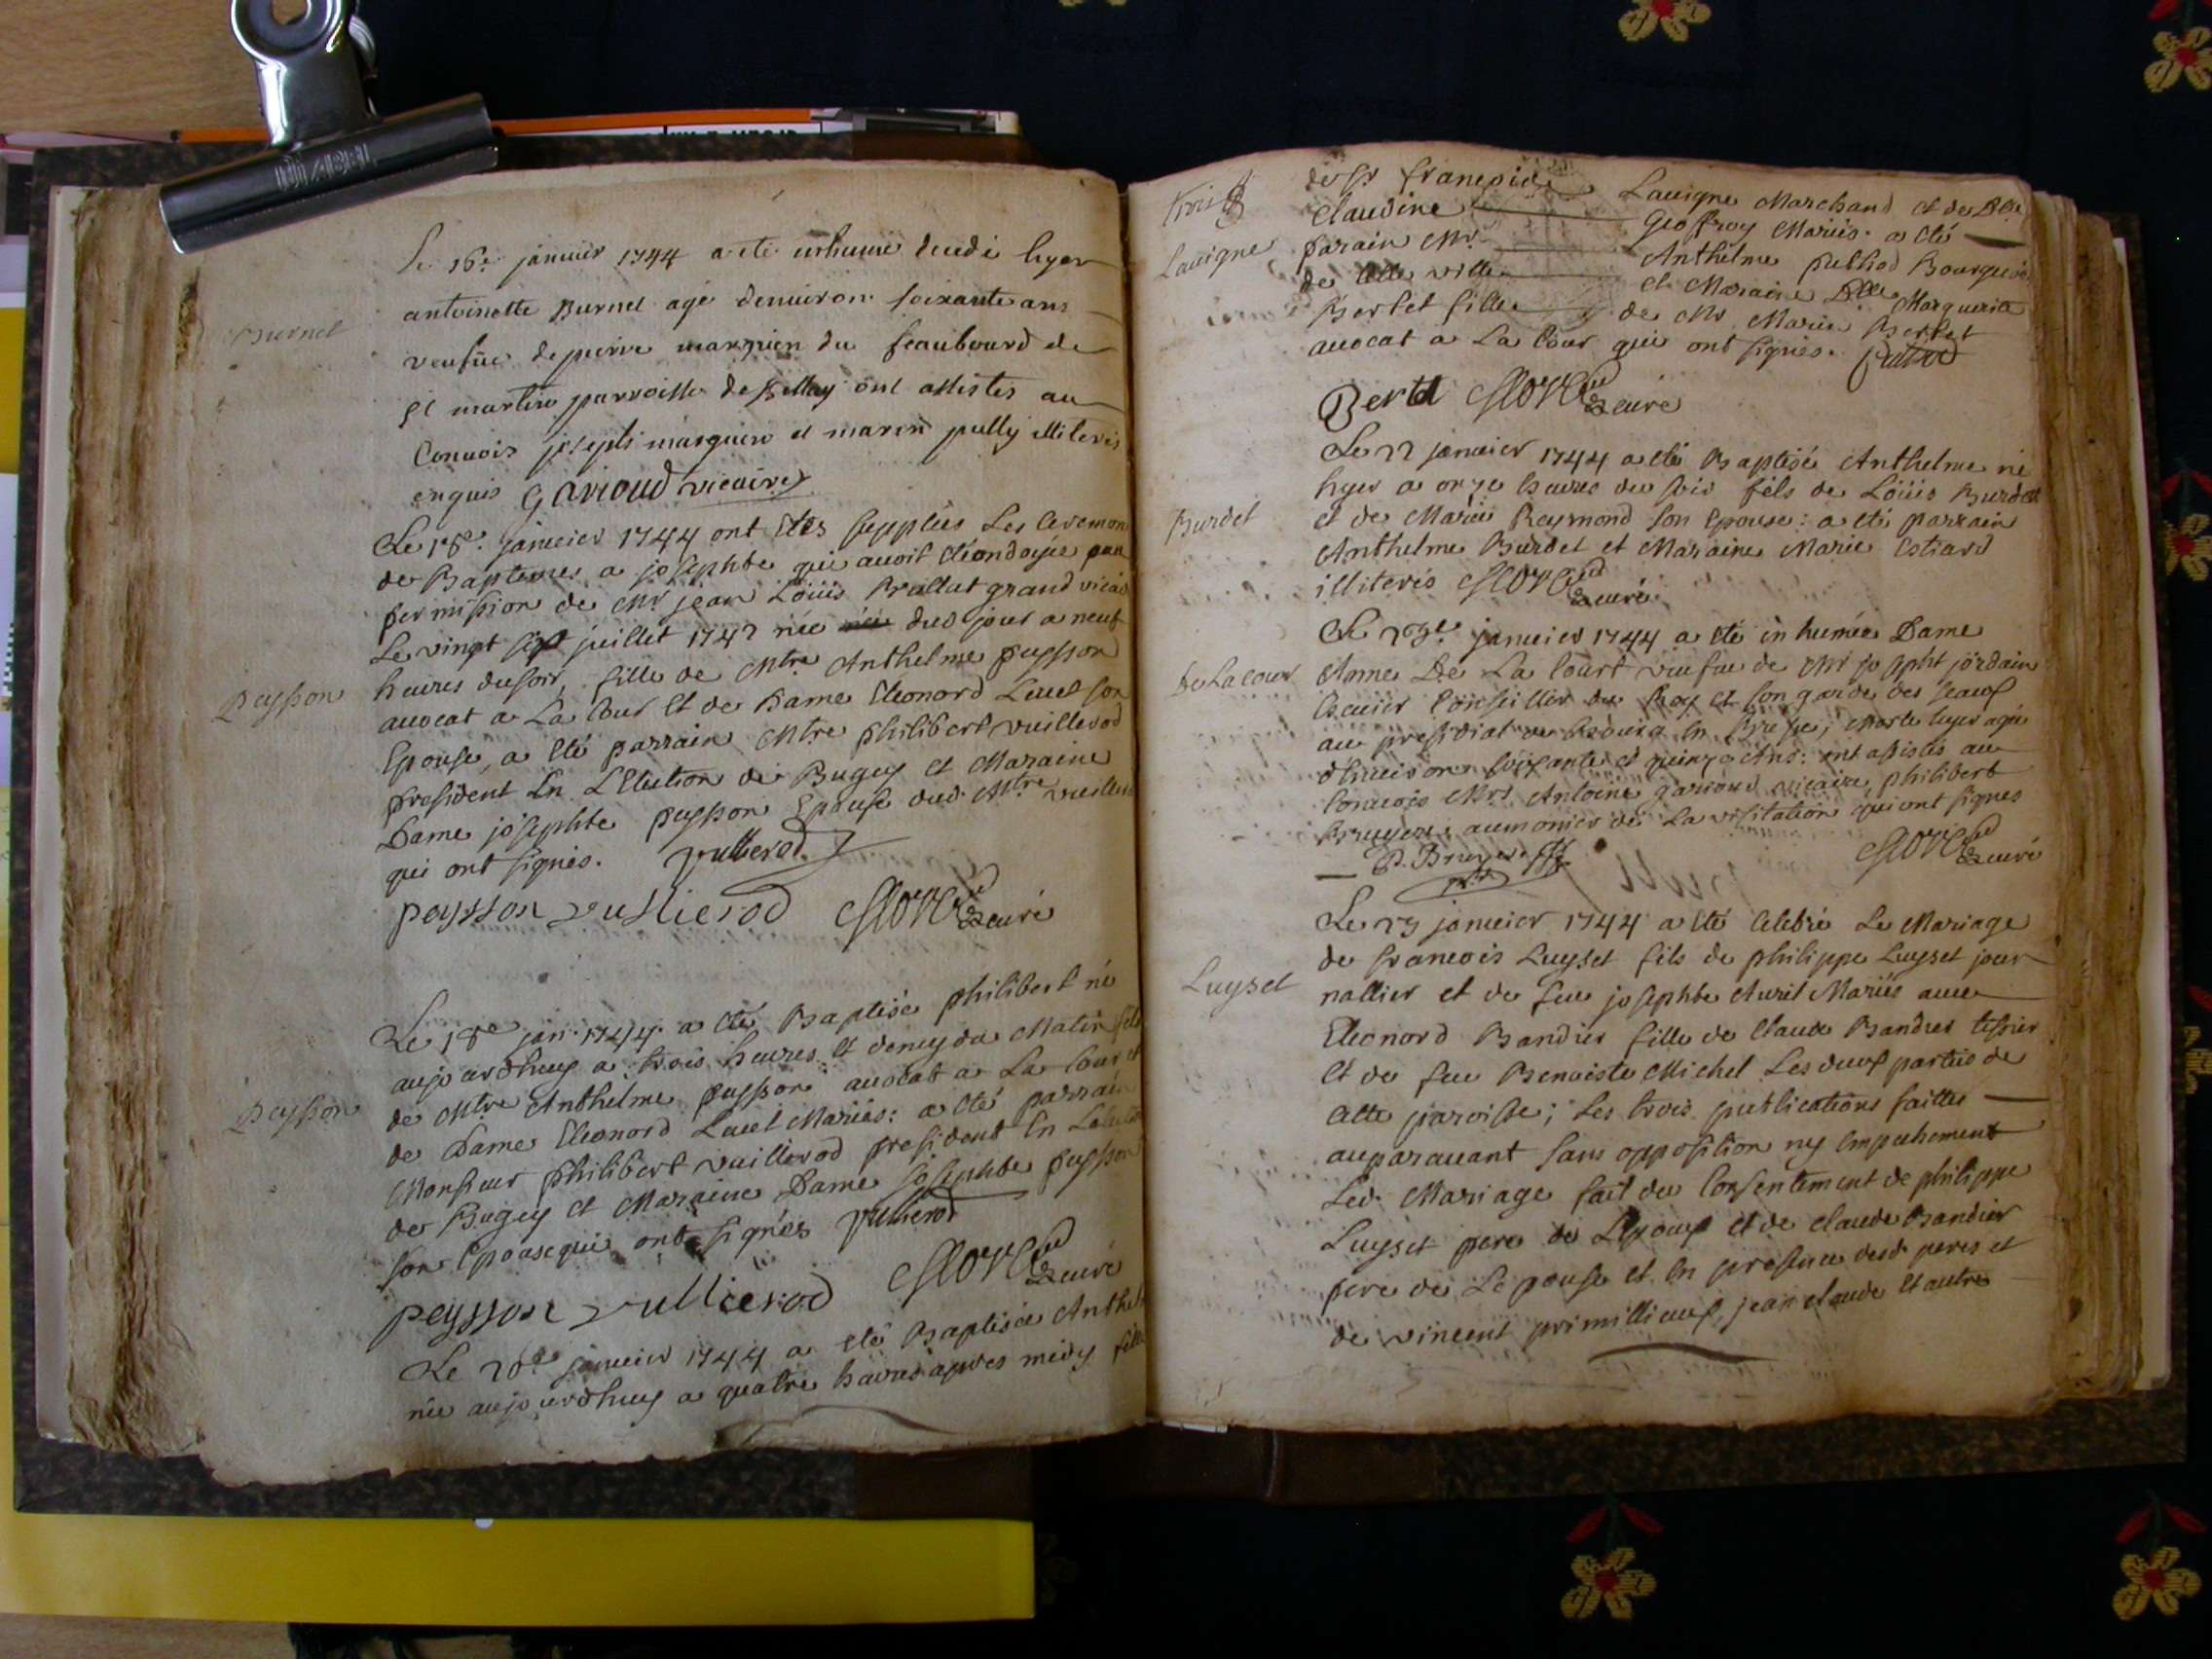 ABEL
Burnel
Le 16e janvier 1744 a ete inhumé decedé hyer
antoinette Burnel agé denuiron soixante ans
veufue de pierre marquien du feaubourd de
St martin parroisse de Bellay ont assistes au
Conuois joseph marquien et marin pully illiteris
enquis Garioud vicaire
Peysson
Le 18e janvier 1744 ont Etes supplées Les Ceremon
de Baptemes a josephte qui auoit eté ondoyée par
permission de Mr jean Loüis Prallat grand vicai
Le vingt sept juillet 1742 née dud jour a neuf
heures du soir, fille de Mtre Anthelme peysson
auocat a La Cour Et de Dame Eleonord Luuel son
Epouse, a Eté parrain Mtre philibert vuillerod
president En L'Election de Bugey et Maraine
Dame josephte peysson Epouse dud. Mtre vuillero
qui ont signés. vullierod
peysson vullierod curé
Peysson
Le 18e jan. 1744 a eté Baptisé philibert né
aujourdhuy a trois heures et demy du Matin fils
de Mtre Anthelme peysson auocat a La Cour et
de Dame Eleonord Luuel Mariés: a eté parrain
Monsieur philibert vuillerod president En L'elect
de Bugey et Maraine Dame josephte peysson
son Epouse qui ont signés vullierod
peysson vullierod curé
Le 20e janvier 1744 a eté Baptisée Anthel
née aujourdhuy a quatre heures apres midy fille
Lauigne
de Sr francois Lauigne Marchand et de Dlle
Claudine Geoffroy Mariés. a eté
parain Mr Anthelme pulliod Bourgeois
de cette ville et Maraine Dlle Marguerite
Bertet fille de Mr Marin Bertet
auocat a La Cour qui ont signés.
Bertet curé
Burdet
Le 22 janvier 1744 a eté Baptisé Anthelme né
hyer a onze heures du soir fils de Loüis Burdet
et de Marie Reymond son Epouse: a eté parrain
Anthelme Burdet et Maraine Marie
illiterés curé
De La cour
Le janvier 1744 a eté in humée Dame
Anne De La Court veufue de Mr joseph jordain
Ecuier Conseiller du Roy et son garde des seaux
au presidial de Bourg En Bresse; Morte hyer agée
d'Enuiron soixante et quinze Ans: ont assistés au
Conuois Mrs Antoine garioud vicaire, philibert
Bruyere aumonier de La visitation qui ont signés
P. Bruyere ptre curé
Luyset
Le janvier 1744 a eté Celebré Le Mariage
de francois Luyset fils de philippe Luyset jour
nallier et de feue josephte Auril Mariés auec
Eleonord Bandier fille de Claude Bandier tessier
Et de feue Benoiste Michel Les deux parties de
cette paroisse; Les trois publications faittes
auparauant sans opposition ny Empechement
Led. Mariage fait du Consentement de philippe
Luyset pere de L'Epoux et de claude Bandier
pere de L'epouse et En presence desd. peres et
de vincent primillieux, jean claude Et autre